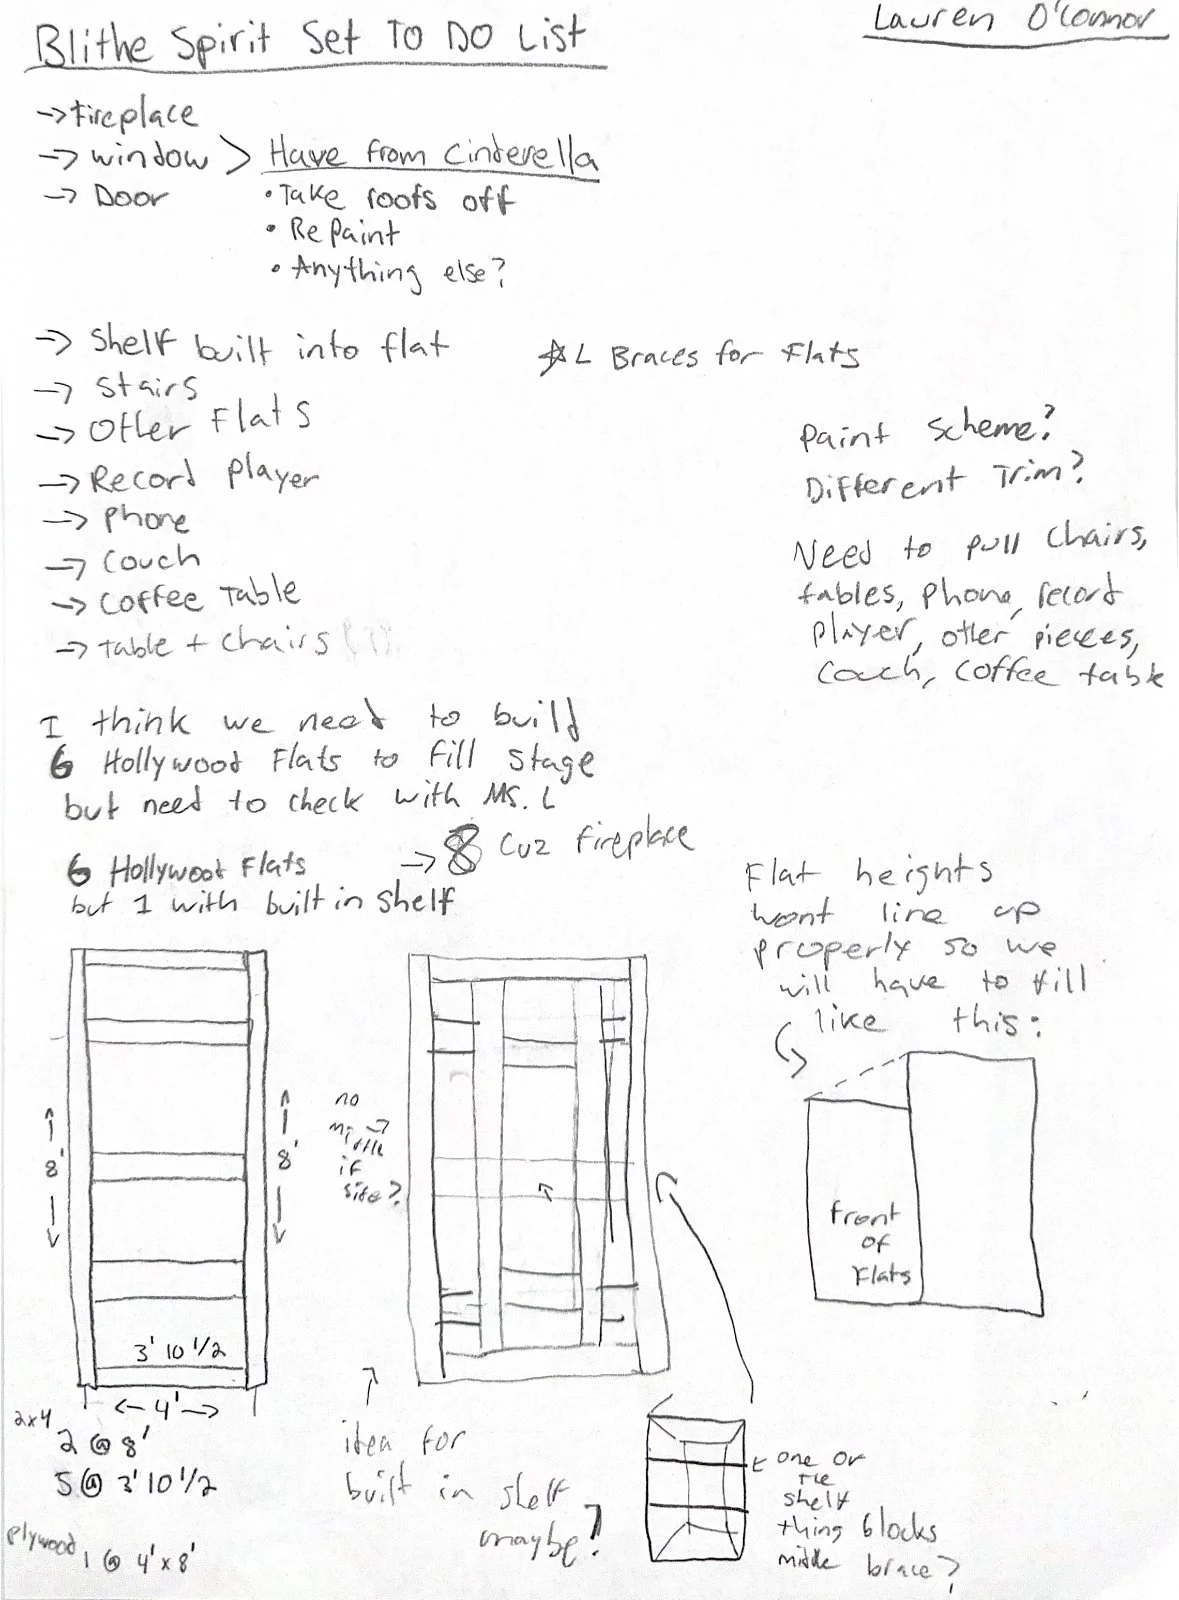 Blithe Spirit Set To Do List
Lauren O'Connor
-> Fireplace
-> window > Have from Cinderella
-> Door
• Take roofs off
• Repaint
• Anything else?
-> Shelf built into flat
☆ L Braces for Flats
-> Stairs
-> Other Flats
-> Record Player
-> Phone
-> Couch
-> Coffee Table
-> Table + chairs
Paint Scheme?
Different Trim?
Need to pull Chairs,
tables, phone, record
player, other pieces,
Couch, Coffee table
I think we need to build
6 Hollywood Flats to fill stage
but need to check with Ms. L
6 Hollywood Flats -> 8 Cuz fireplace
but 1 with built in shelf
Flat heights
wont line up
properly so we
will have to fill
like this:
8'
8'
3' 10 1/2
<- 4' ->
2x4
2 @ 8'
5 @ 3' 10 1/2
plywood
1 @ 4' x 8'
no
middle ->
if
idea for
built in shelf
maybe?
front
of
Flats
one or
the
shelf
thing blocks
middle brace?